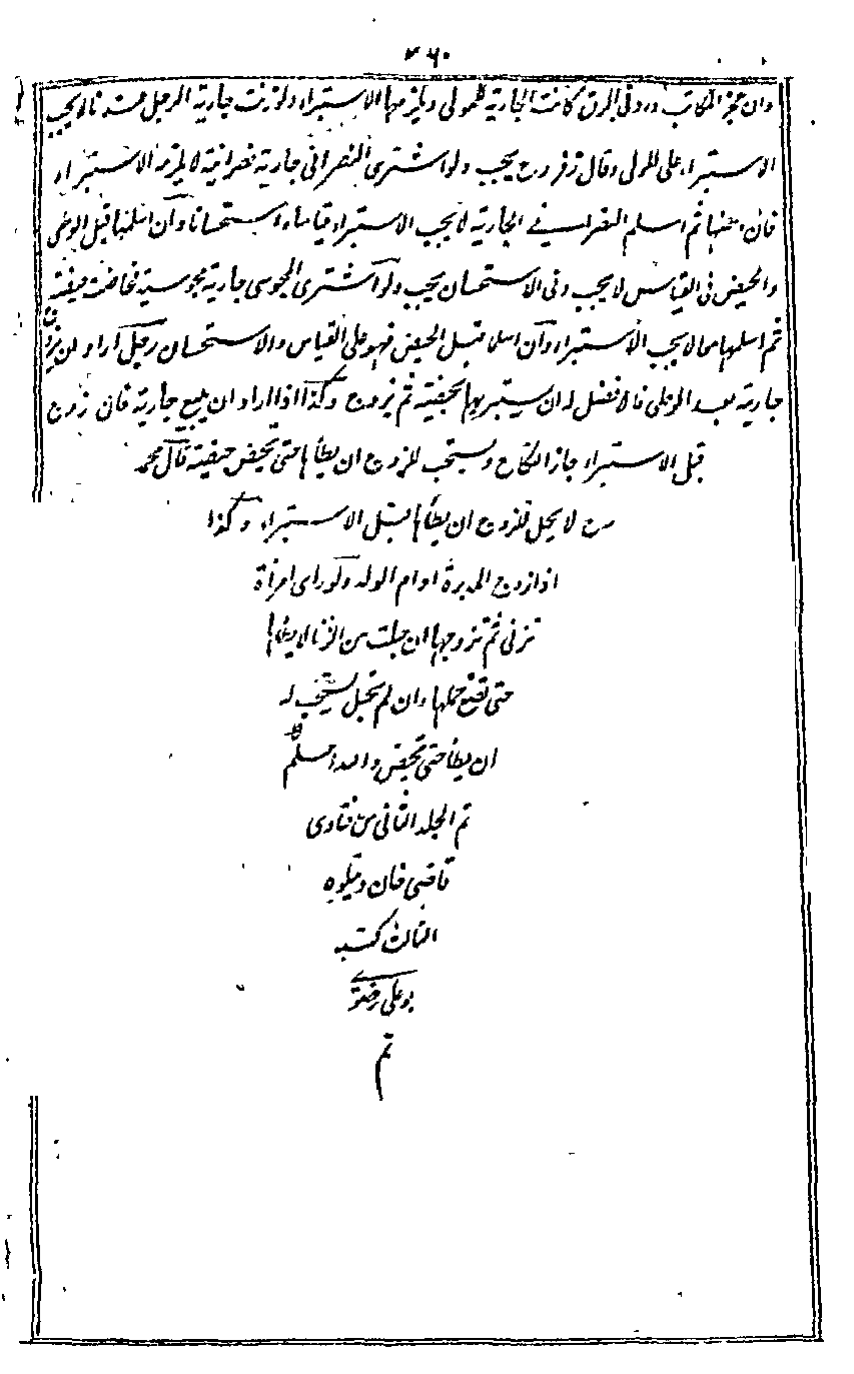 ٣٦٠
وان عجز المكاتب ورد في الرق كانت الجارية للمولى ويلزمها الاستبراء ولو زنت جارية الرجل عندنا لا يجب
الاستبراء على المولى وقال زفر رح يجب ولو اشترى النصراني جارية نصرانية لا يلزمه الاستبراء
فان ثم اسلم النصراني في الجارية لا يجب الاستبراء قياسا واستحسانا وان اسلمها قبل الوطى
والحيض في القياس لا يجب وفي الاستحسان يجب ولو اشترى المجوسي جارية مجوسية فحاضت حيضة
ثم اسلمها معا لا يجب الاستبراء وان اسلما قبل الحيض فهو على القياس والاستحسان رجل اراد ان يزوج
جارية بعد الوطى فالافضل له ان يستبريها بحيضة ثم يزوج وكذا اذا اراد ان يبيع جارية فان زوج
قبل الاستبراء جاز النكاح ويستحب للزوج ان يطأها حتى تحيض حيضة قال محمد
رح لا يحل للزوج ان يطأها قبل الاستبراء وكذا
اذا زوج المدبرة او ام الولد ولو راى امرأة
تزني ثم تزوجها ان حبلت من الزنا لا يطأها
حتى تضع حملها وان لم تحبل يستحب له
ان يطأ حتى تحيض والله اعلم
تم الجلد الثاني من فتاوى
قاضي خان ويتلوه
الثالث كتبه
بو علي رضوي
تم